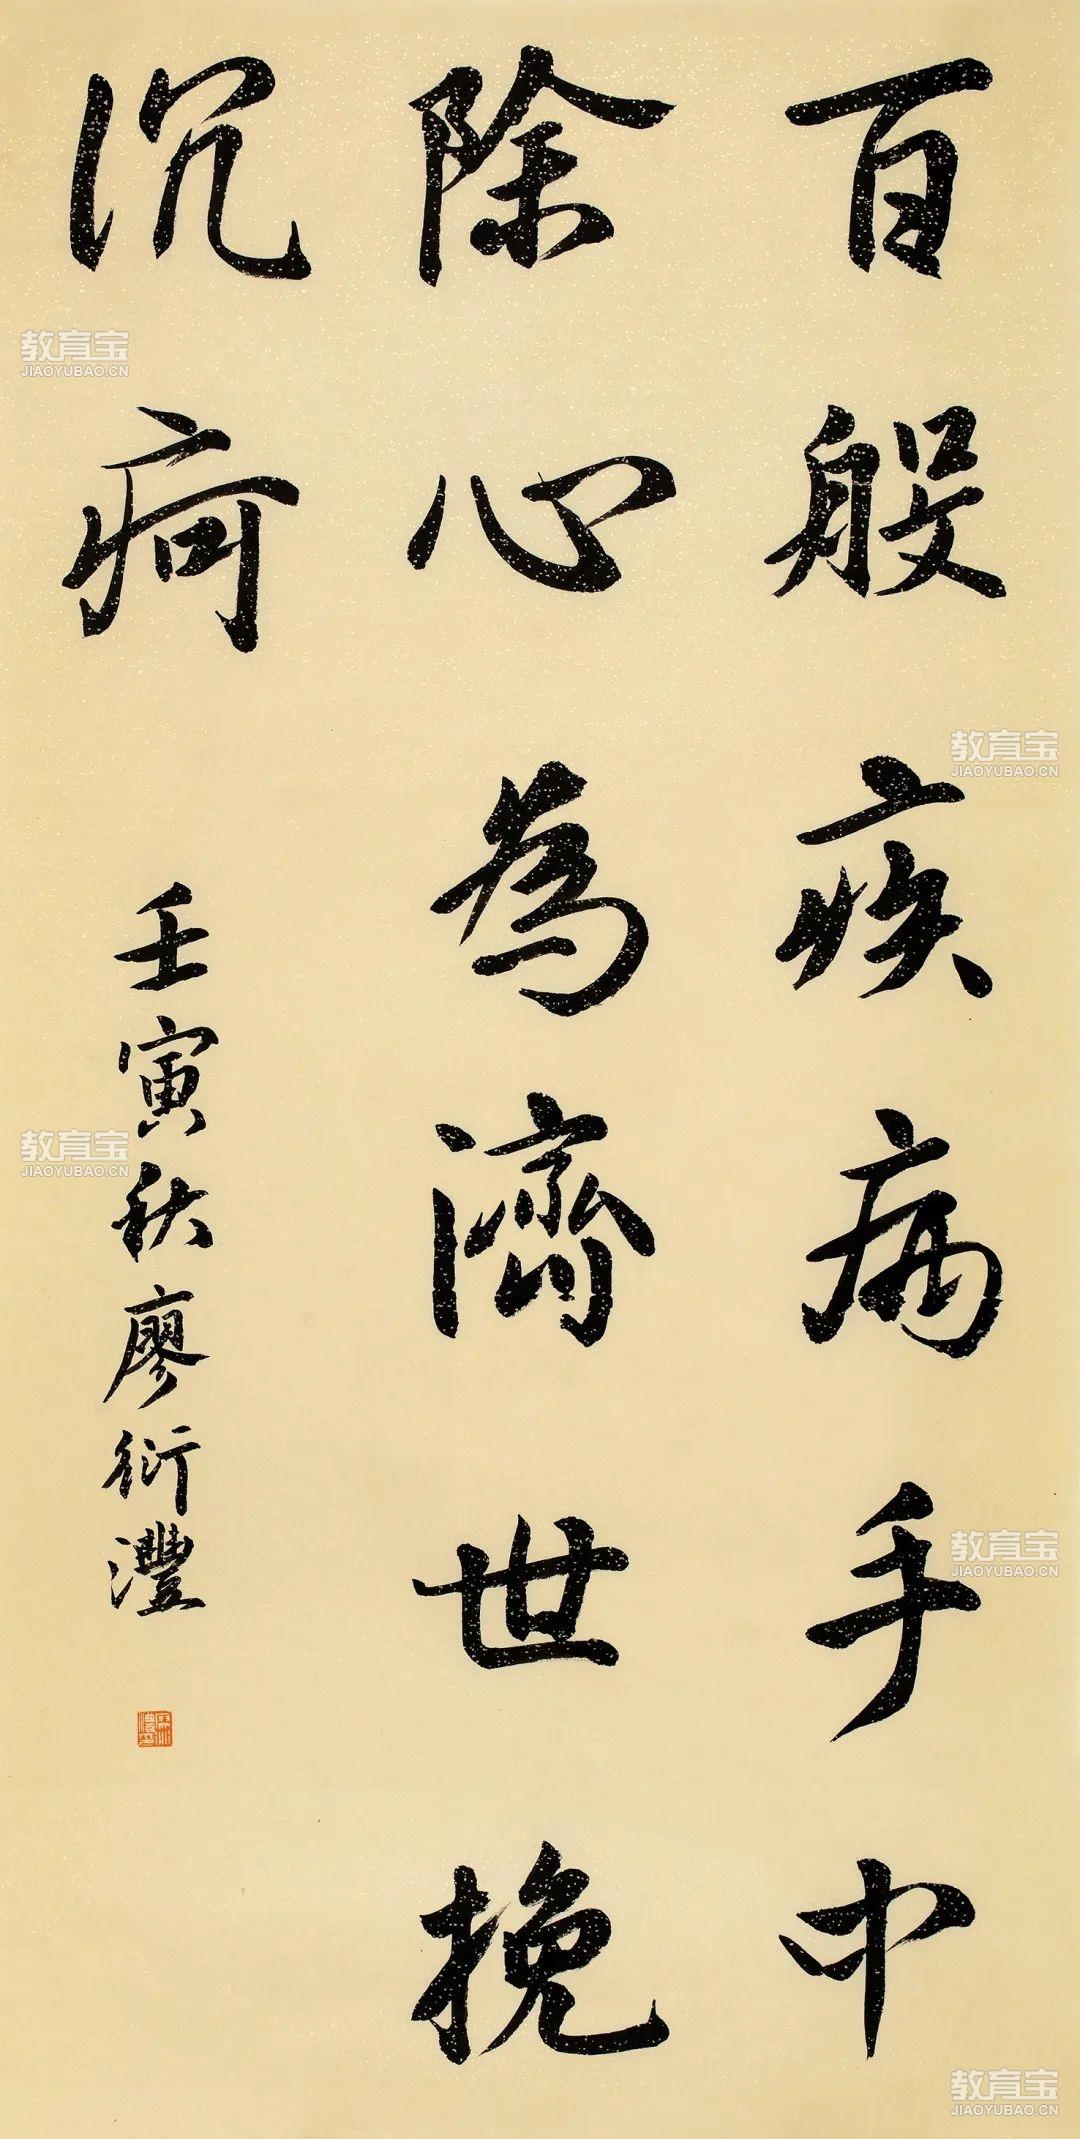 百般疾病手中
除心為濟世挽
沉疴
壬寅秋廖衍灃
教育宝
JIAOYUBAO.CN
教育宝
JIAOYUBAO.CN
教育宝
JIAOYUBAO.CN
教育宝
JIAOYUBAO.CN
教育宝
JIAOYUBAO.CN